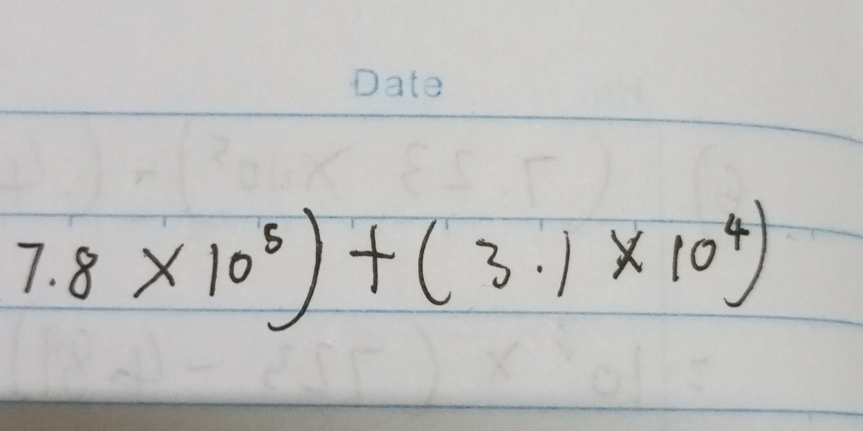 Date
7.8 × 10⁵) + (3.1 × 10⁴)